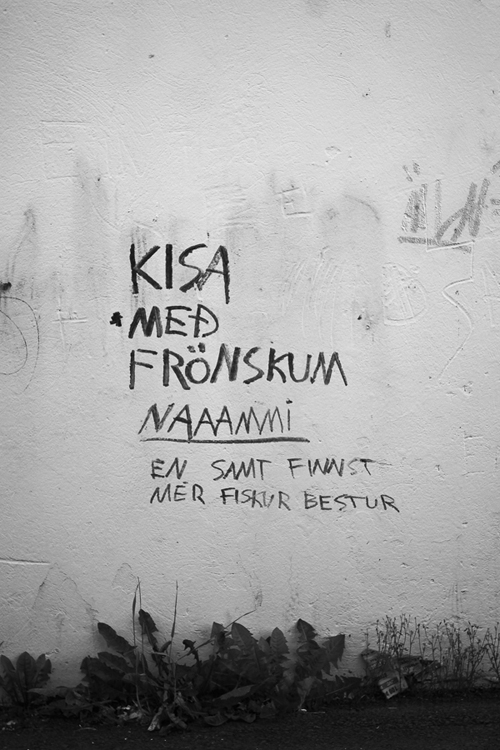 KISA
MEÐ
FRÖNSKUM
NAAAMMi
EN SAMT FINNST
MÉR FISKUR BESTUR